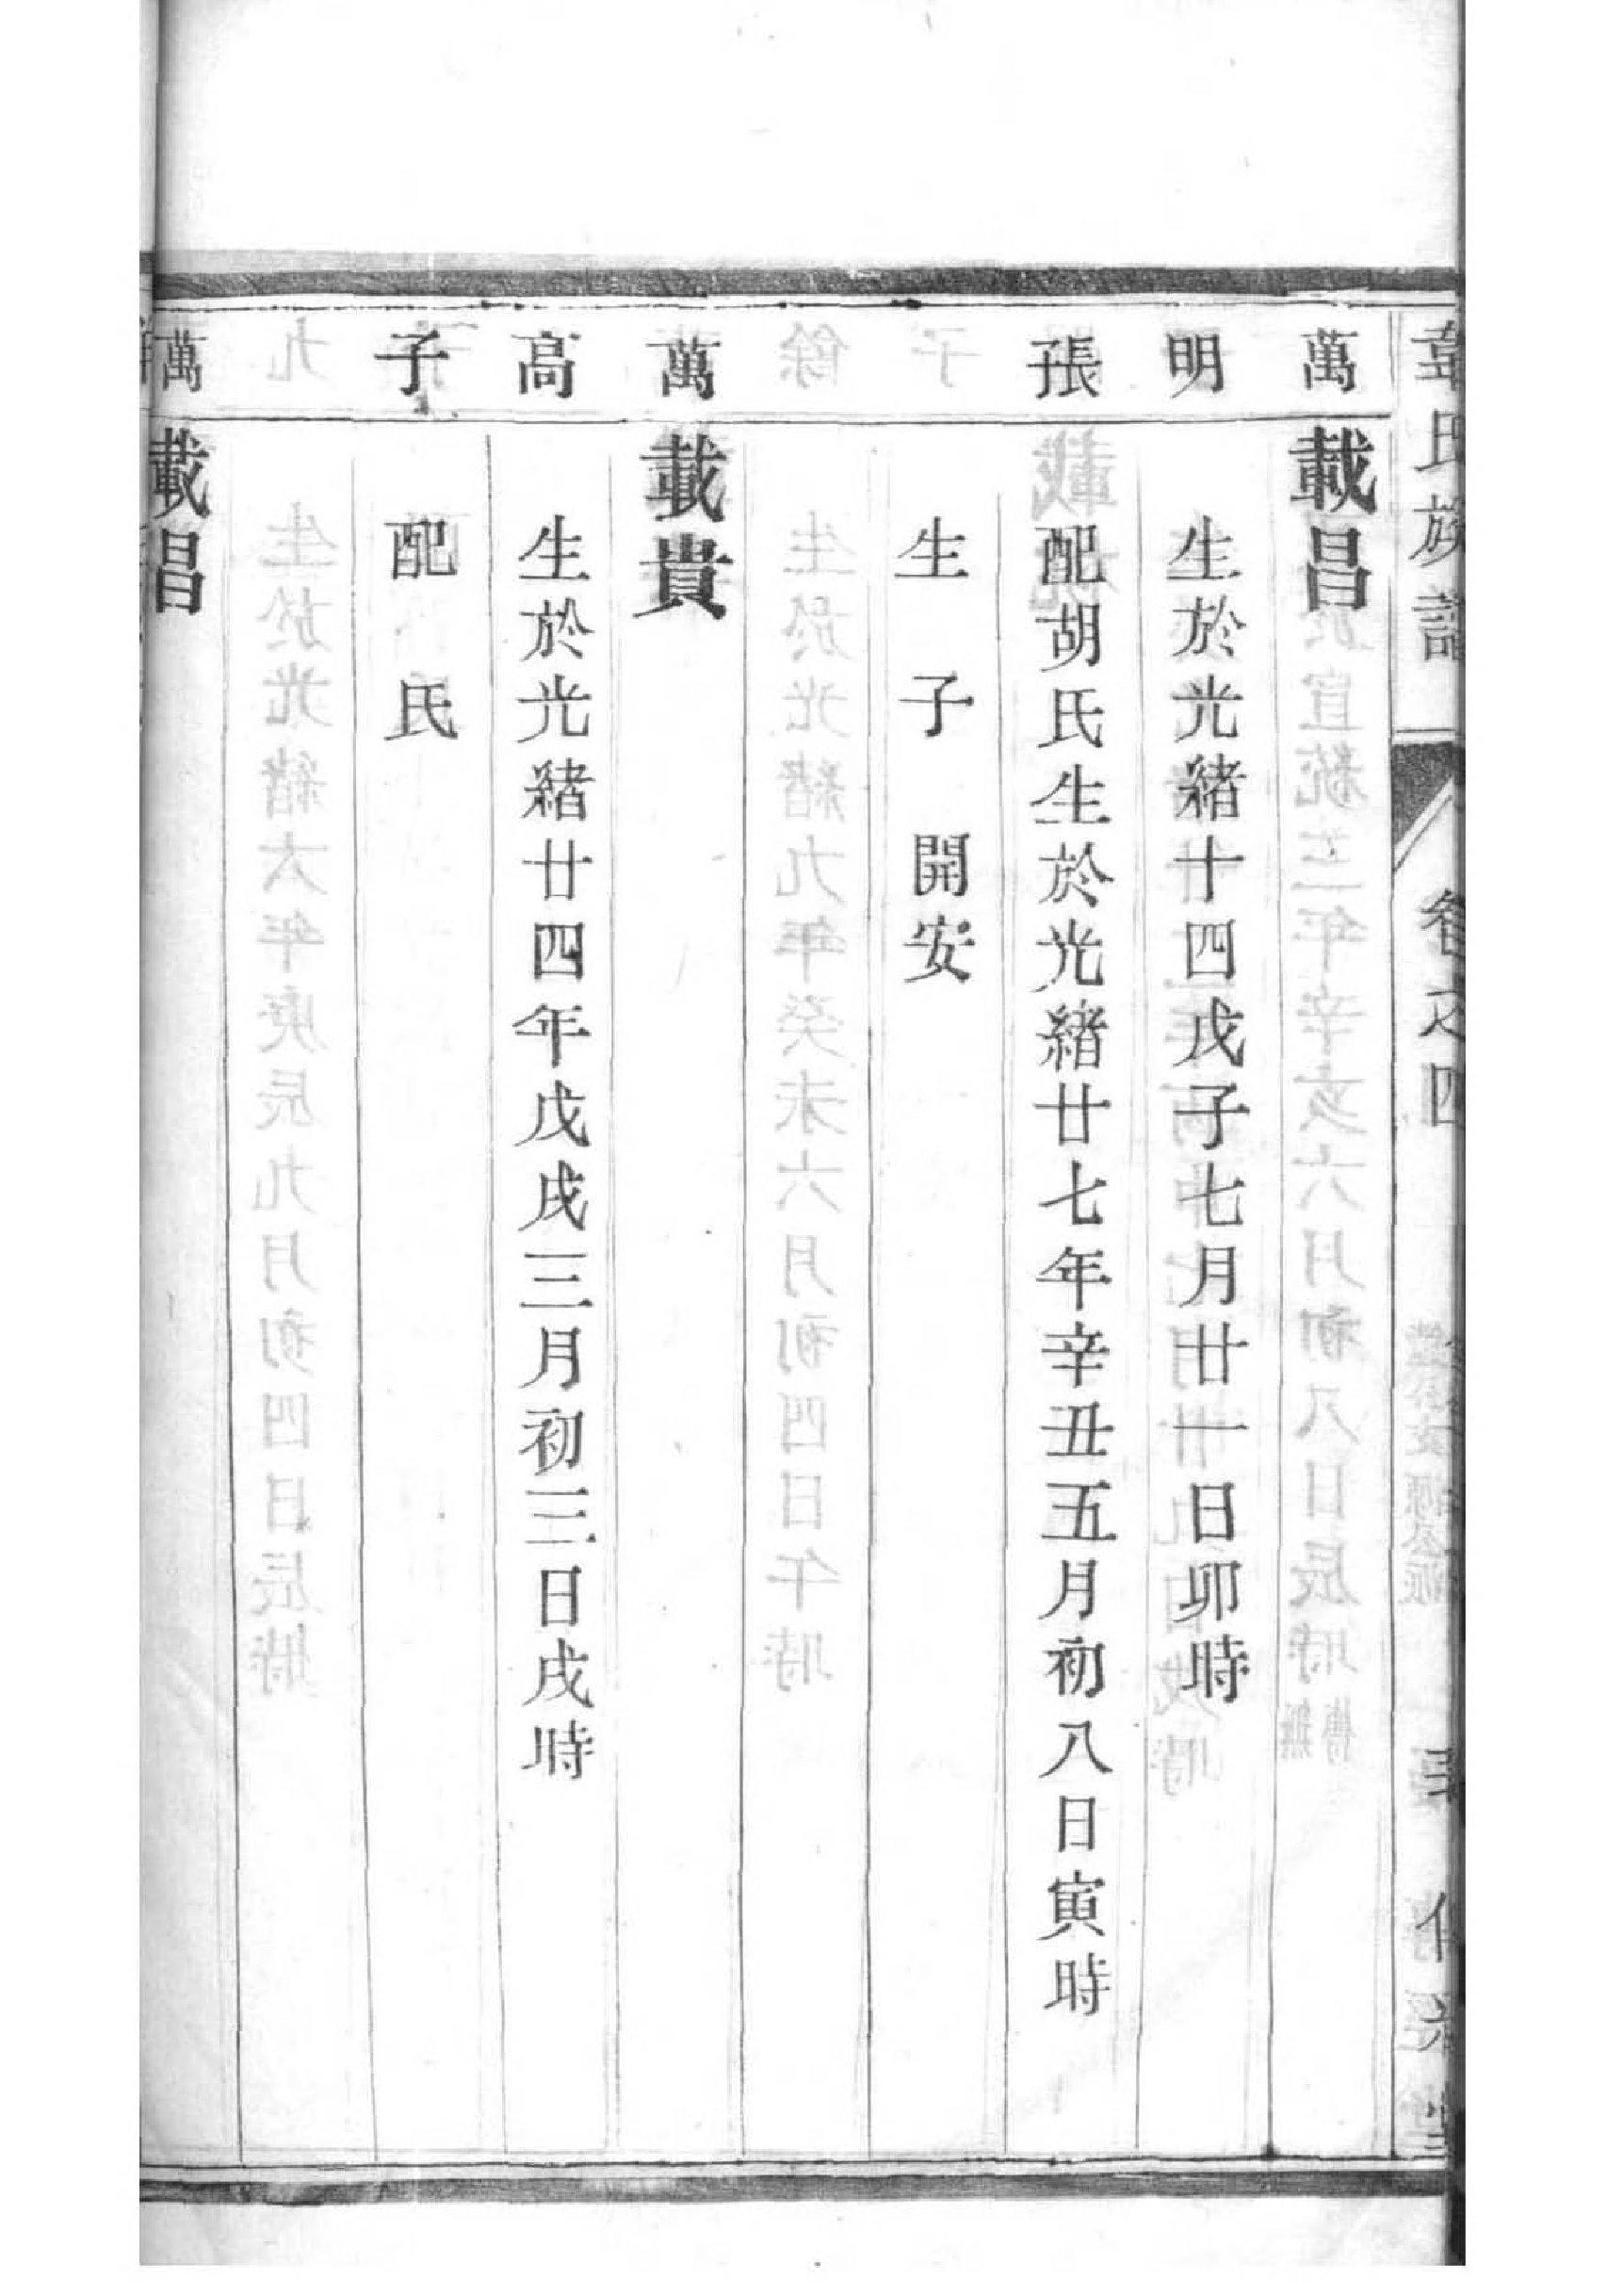 氏族譜 卷之四
萬 載昌
明 生於光緒十四戊子七月廿一日卯時
張 配胡氏生於光緒廿七年辛丑五月初八日寅時
生子 開安
萬 載貴
高 生於光緒廿四年戊戌三月初三日戌時
子 配 氏
萬 載昌